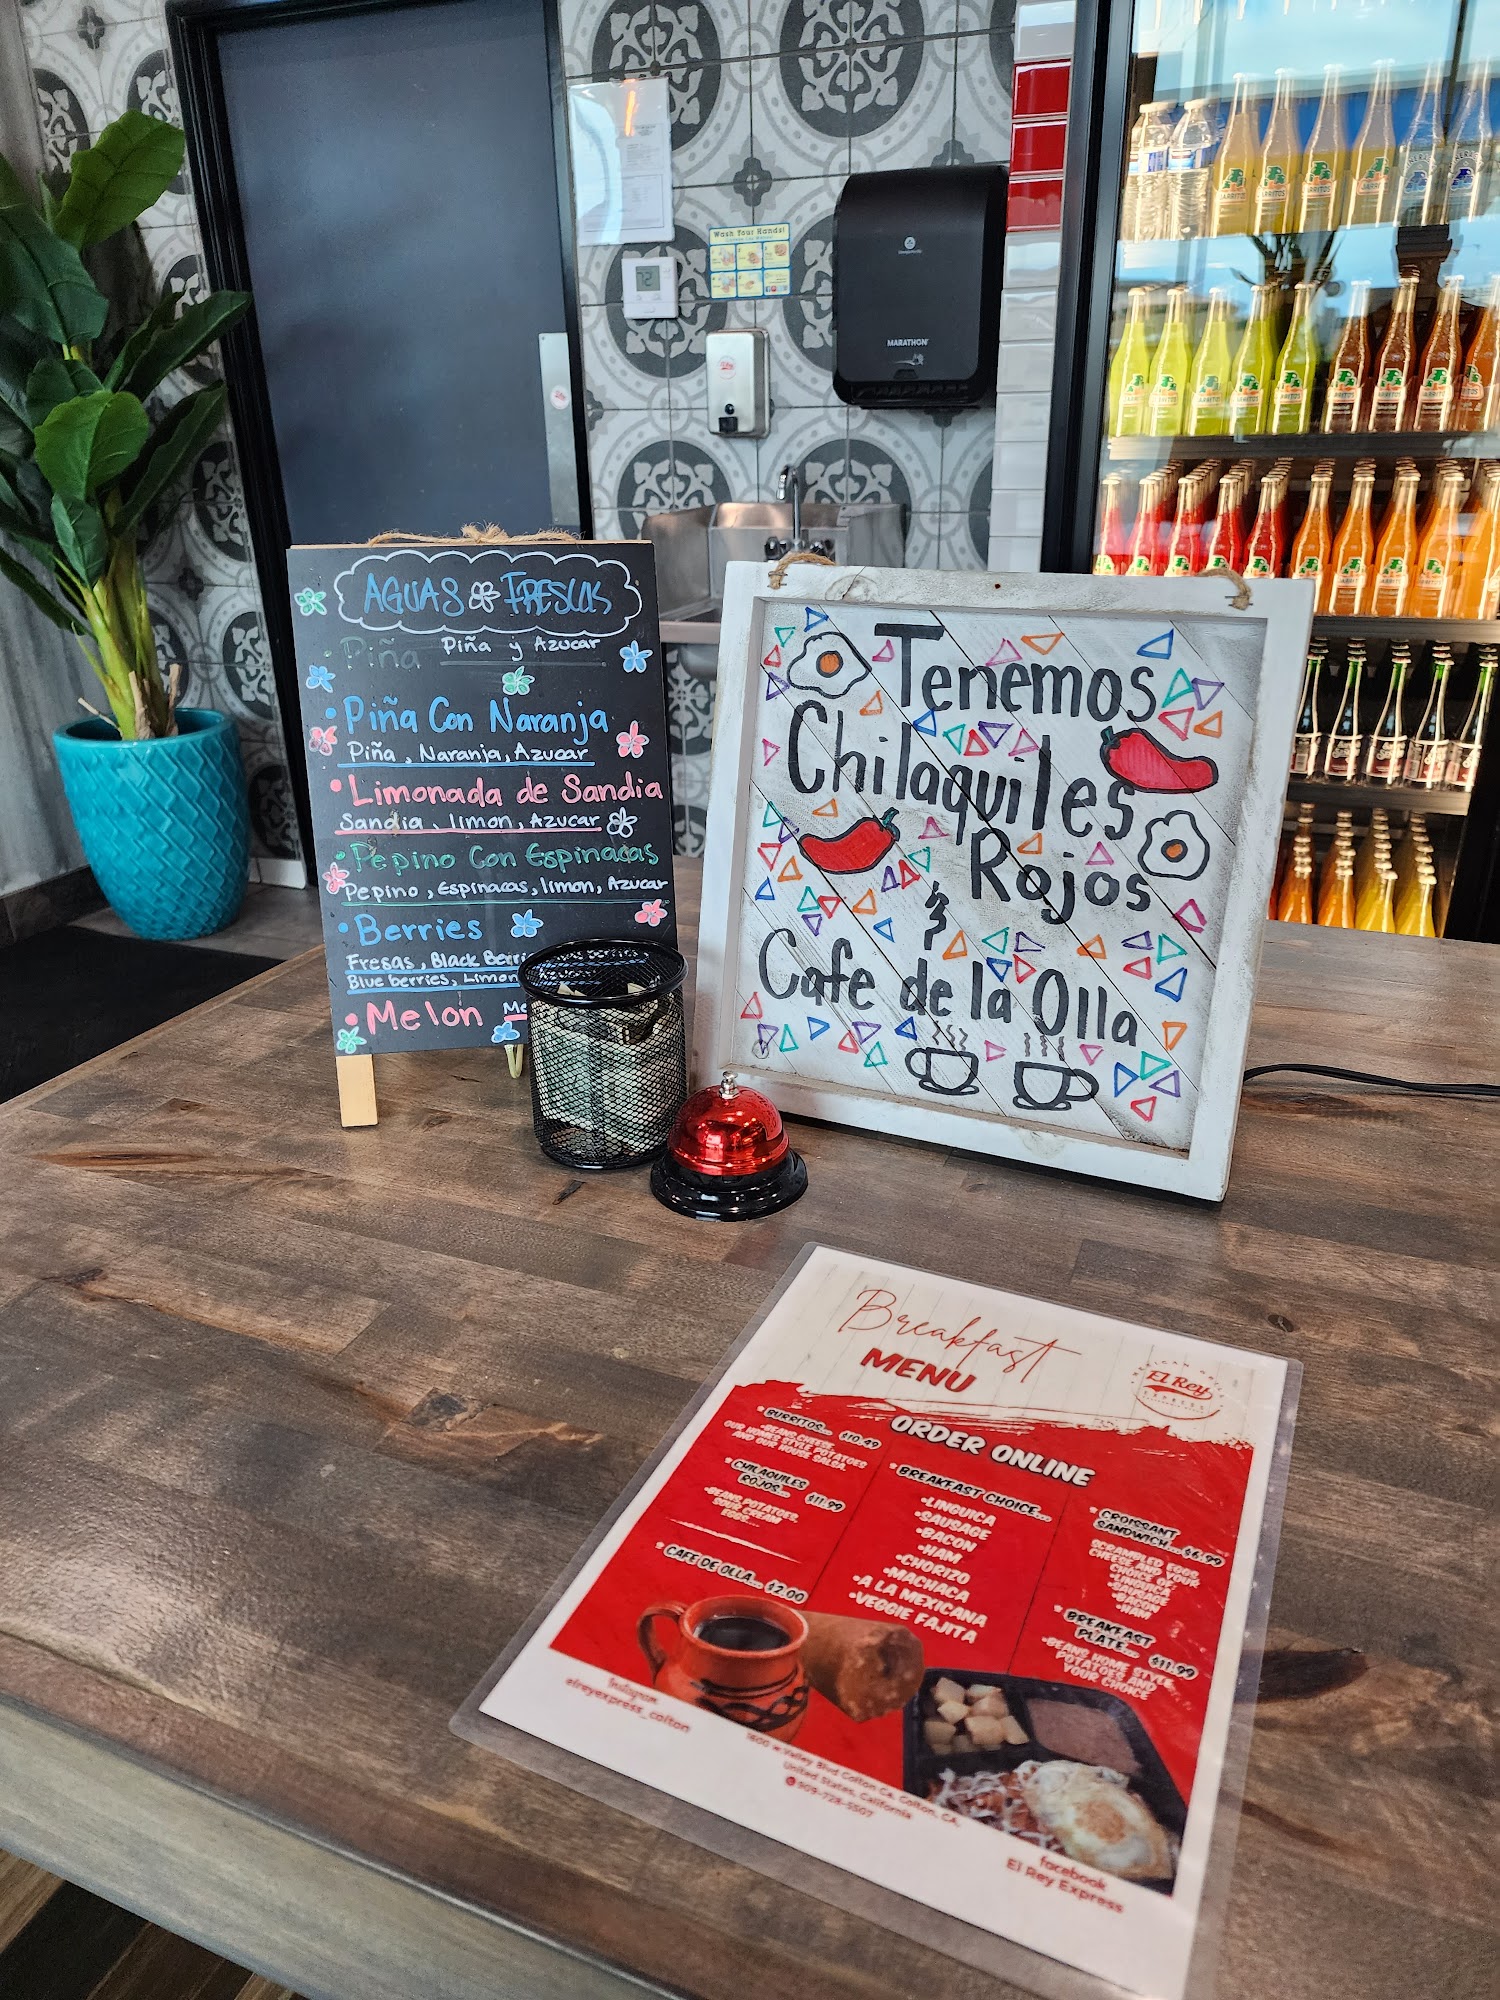 Wash Your Hands!
MARATHON
JARRITOS
AGUAS FRESCAS
Piña Piña y Azucar
• Piña Con Naranja
Piña, Naranja, Azucar
• Limonada de Sandia
Sandia, limon, Azucar
• Pepino Con Espinacas
Pepino, Espinacas, limon, Azucar
• Berries
Fresas, Black Berries
Blue berries, Limon
• Melon
Tenemos
Chilaquiles
Rojos
&
Cafe de la Olla
Breakfast
MENU
MEXICAN GRILL
El Rey
EXPRESS
ORDER ONLINE
* BURRITOS... $10.49
•BEANS,CHEESE,
OUR HOMES STYLE POTATOES
AND OUR HOUSE SALSA.
* CHILAQUILES
ROJOS... $11.99
•BEANS,POTATOES,
SOUR CREAM
EGGS...
* CAFE DE OLLA... $2.00
* BREAKFAST CHOICE...
•LINGUICA
•SAUSAGE
•BACON
•HAM
•CHORIZO
•MACHACA
•A LA MEXICANA
•VEGGIE FAJITA
* CROISSANT
SANDWICH... $6.99
SCRAMBLED EGGS,
CHEESE AND YOUR
CHOICE OF:
•LINGUICA
•SAUSAGE
•BACON
•HAM
* BREAKFAST
PLATE... $11.99
•BEANS, HOME STYLE,
POTATOES AND
YOUR CHOICE
Instagram
elreyexpress_colton
1800 w Valley Blvd Colton Ca, Colton, CA,
United States, California
909-728-5507
facebook
El Rey Express